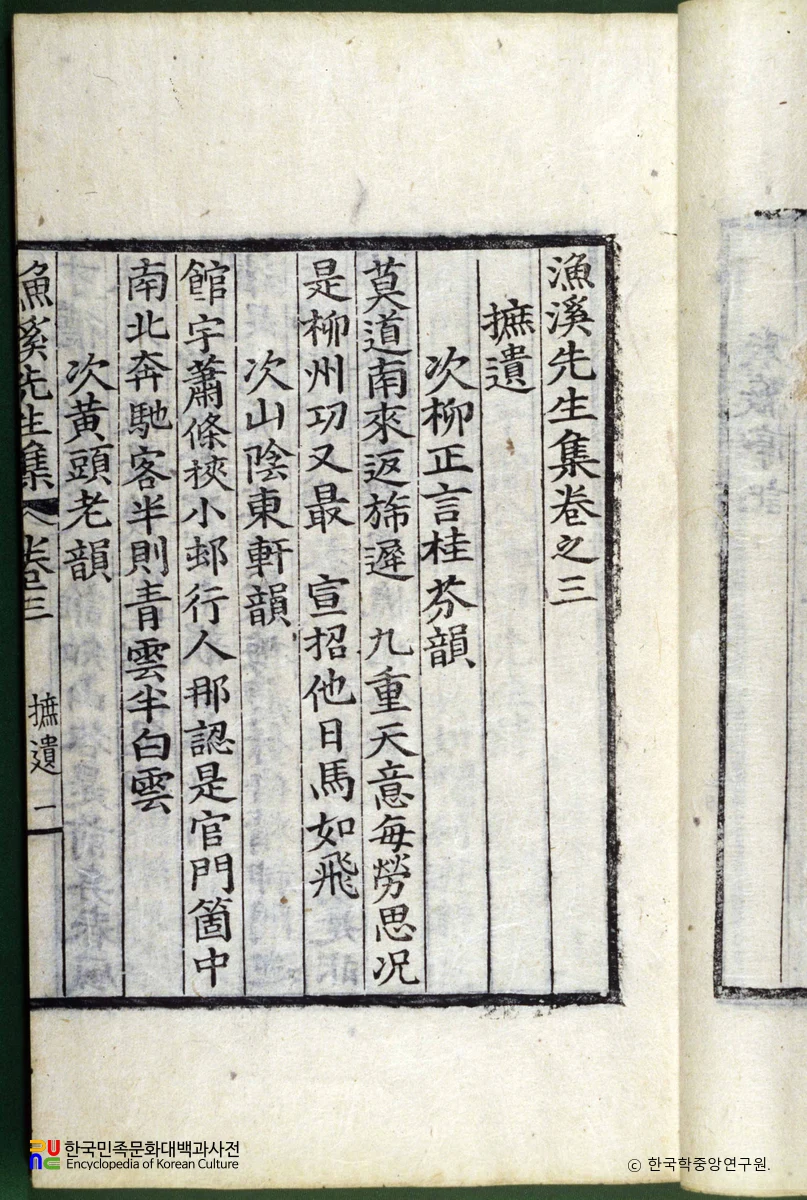 漁溪先生集卷之三
摭遺
次柳正言桂芬韻
莫道南來返旆遲 九重天意每勞思况
是柳州功又最 宣招他日馬如飛
次山陰東軒韻
館宇蕭條挾小邨行人那認是官門箇中
南北奔馳客半則青雲半白雲
次黃頭老韻
漁溪先生集 卷三 摭遺 一
한국민족문화대백과사전
Encyclopedia of Korean Culture
ⓒ 한국학중앙연구원.